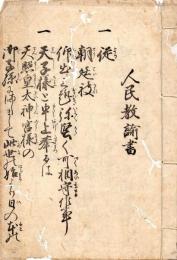 人民教諭書
一 従
朝廷被
仰出之御趣堅く可相守候事
一
天子様と申上奉るは
天照皇太神宮様の
御子孫様にて此世の始より日の本の